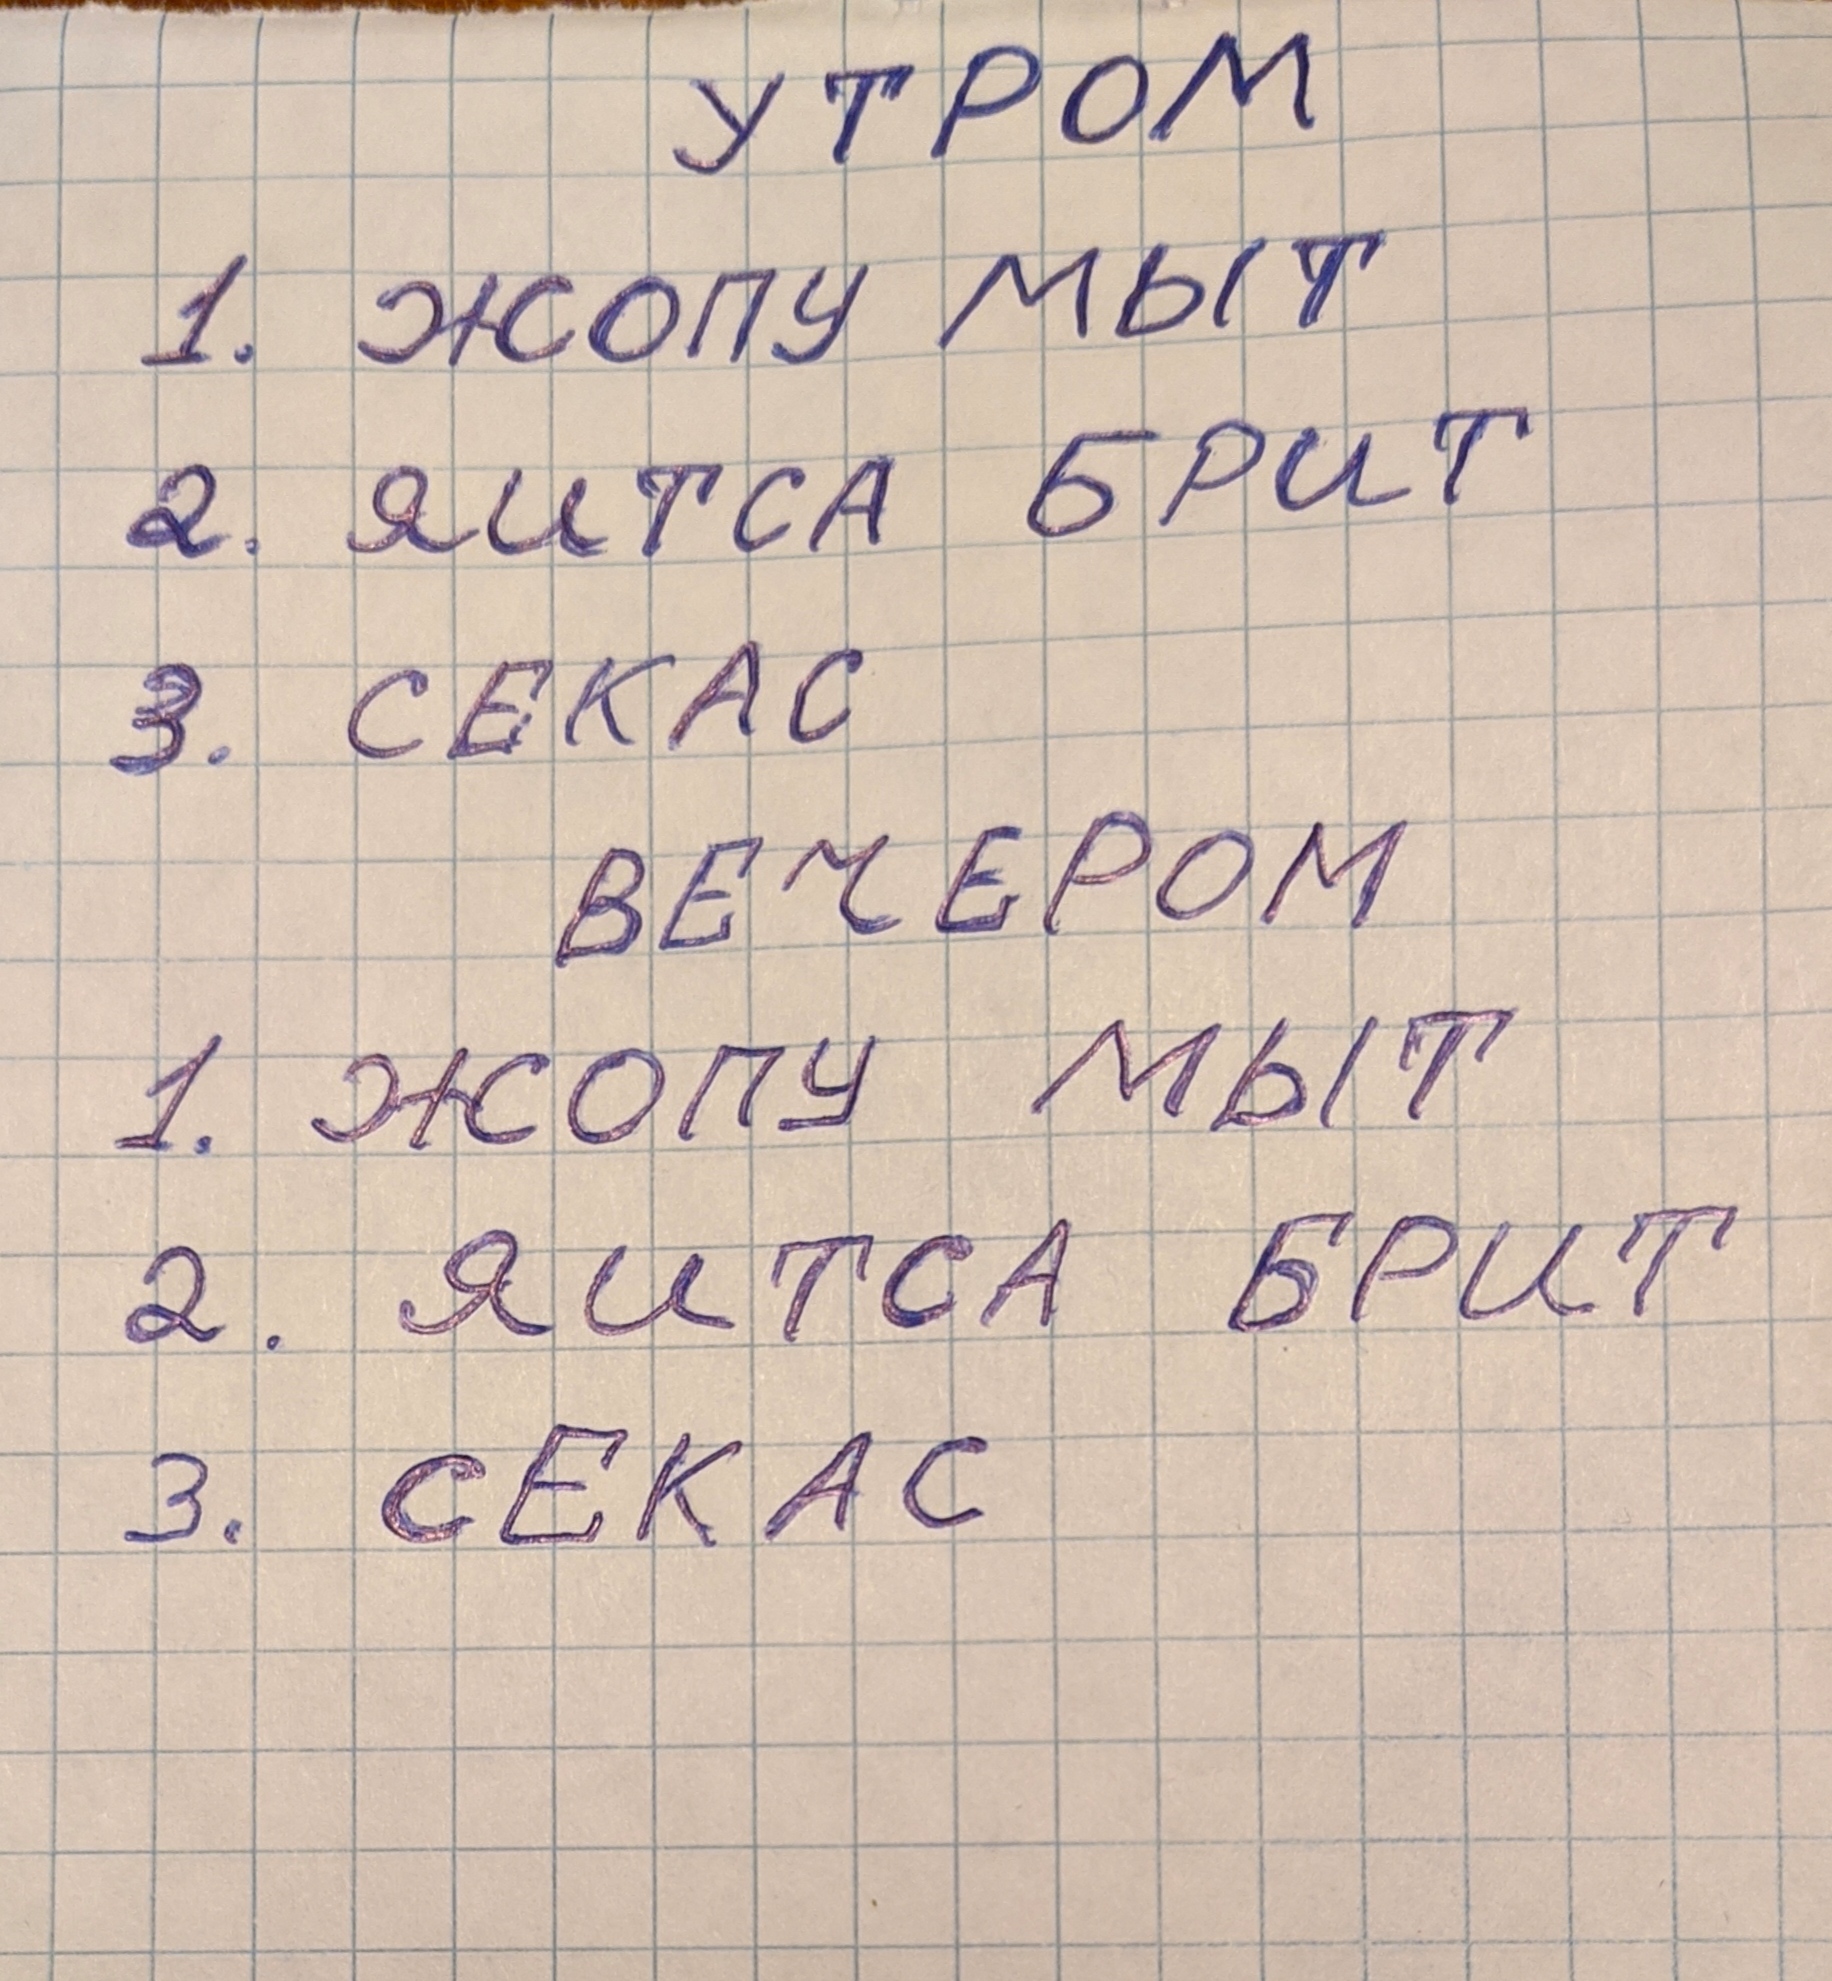 УТРОМ
1. ЖОПУ МЫТ
2. ЯИТСА БРИТ
3. СЕКАС
ВЕЧЕРОМ
1. ЖОПУ МЫТ
2. ЯИТСА БРИТ
3. СЕКАС